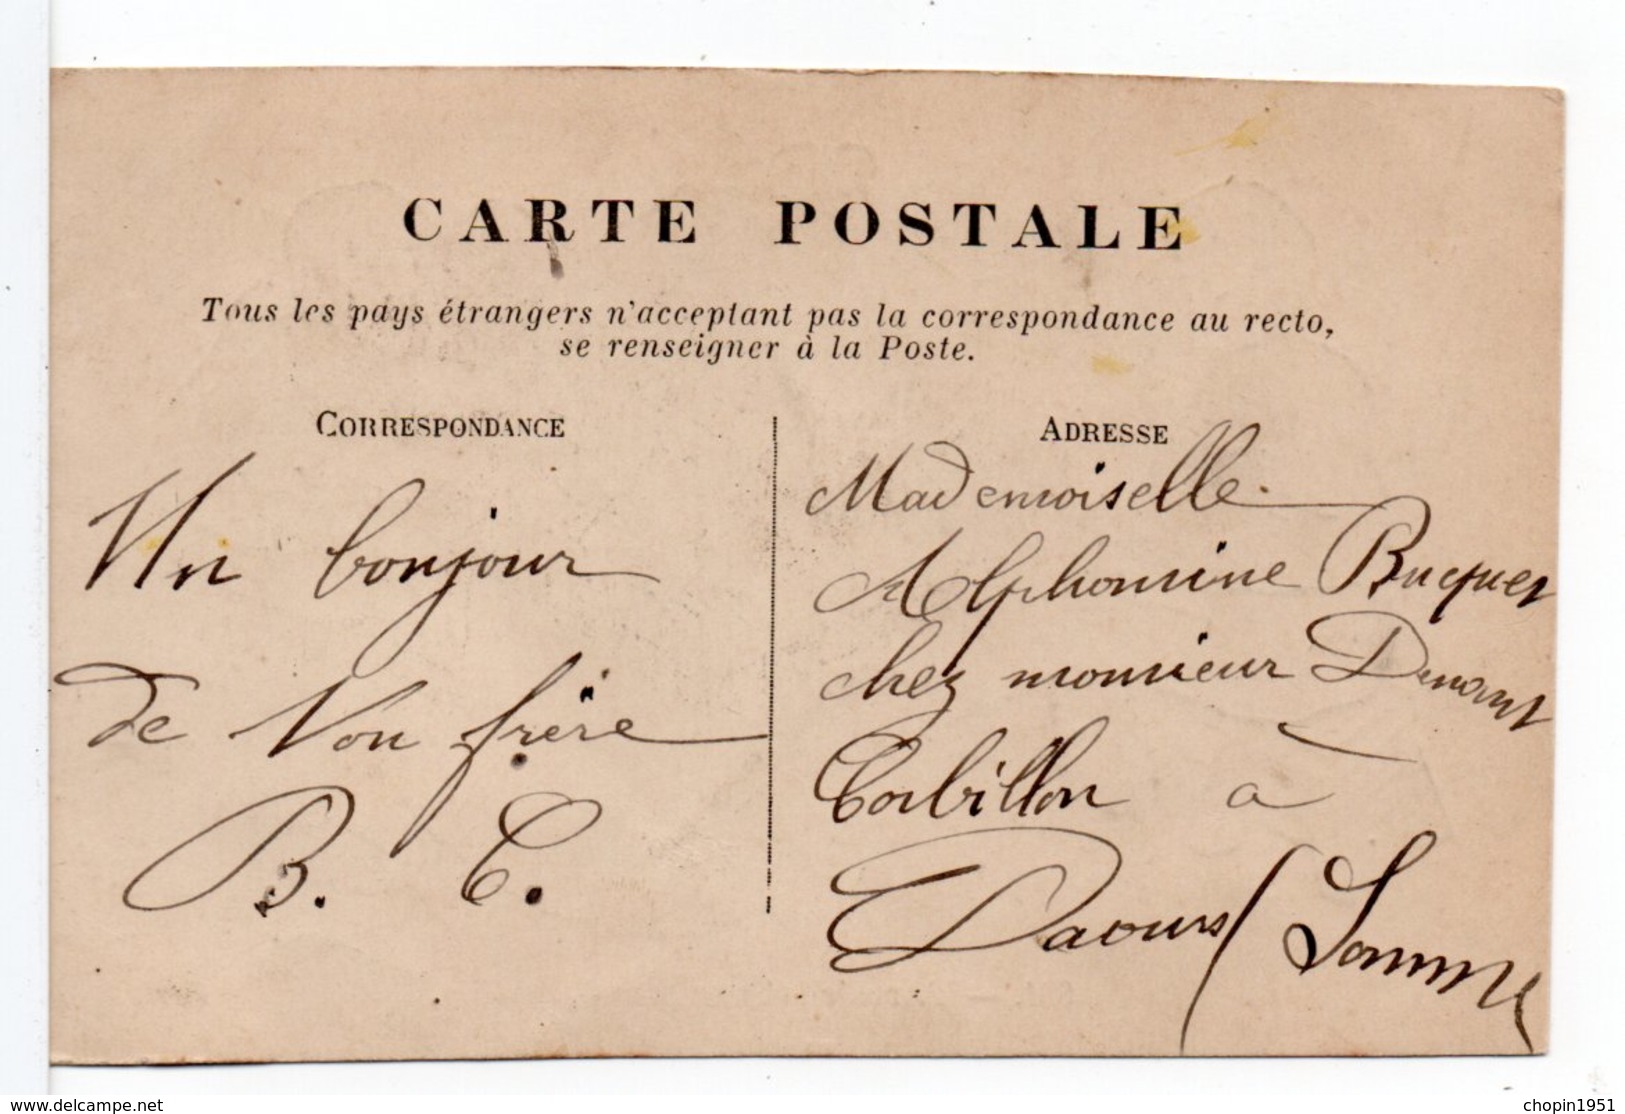 CARTE POSTALE
Tous les pays étrangers n'acceptant pas la correspondance au recto,
se renseigner à la Poste.
CORRESPONDANCE
Un bonjour
de Von frère
B. C.
ADRESSE
Mademoiselle
Alphonsine Bucquet
chez monsieur Dunant
Corbillon à
Daours (Somme)
www.delcampe.net
chopin1951